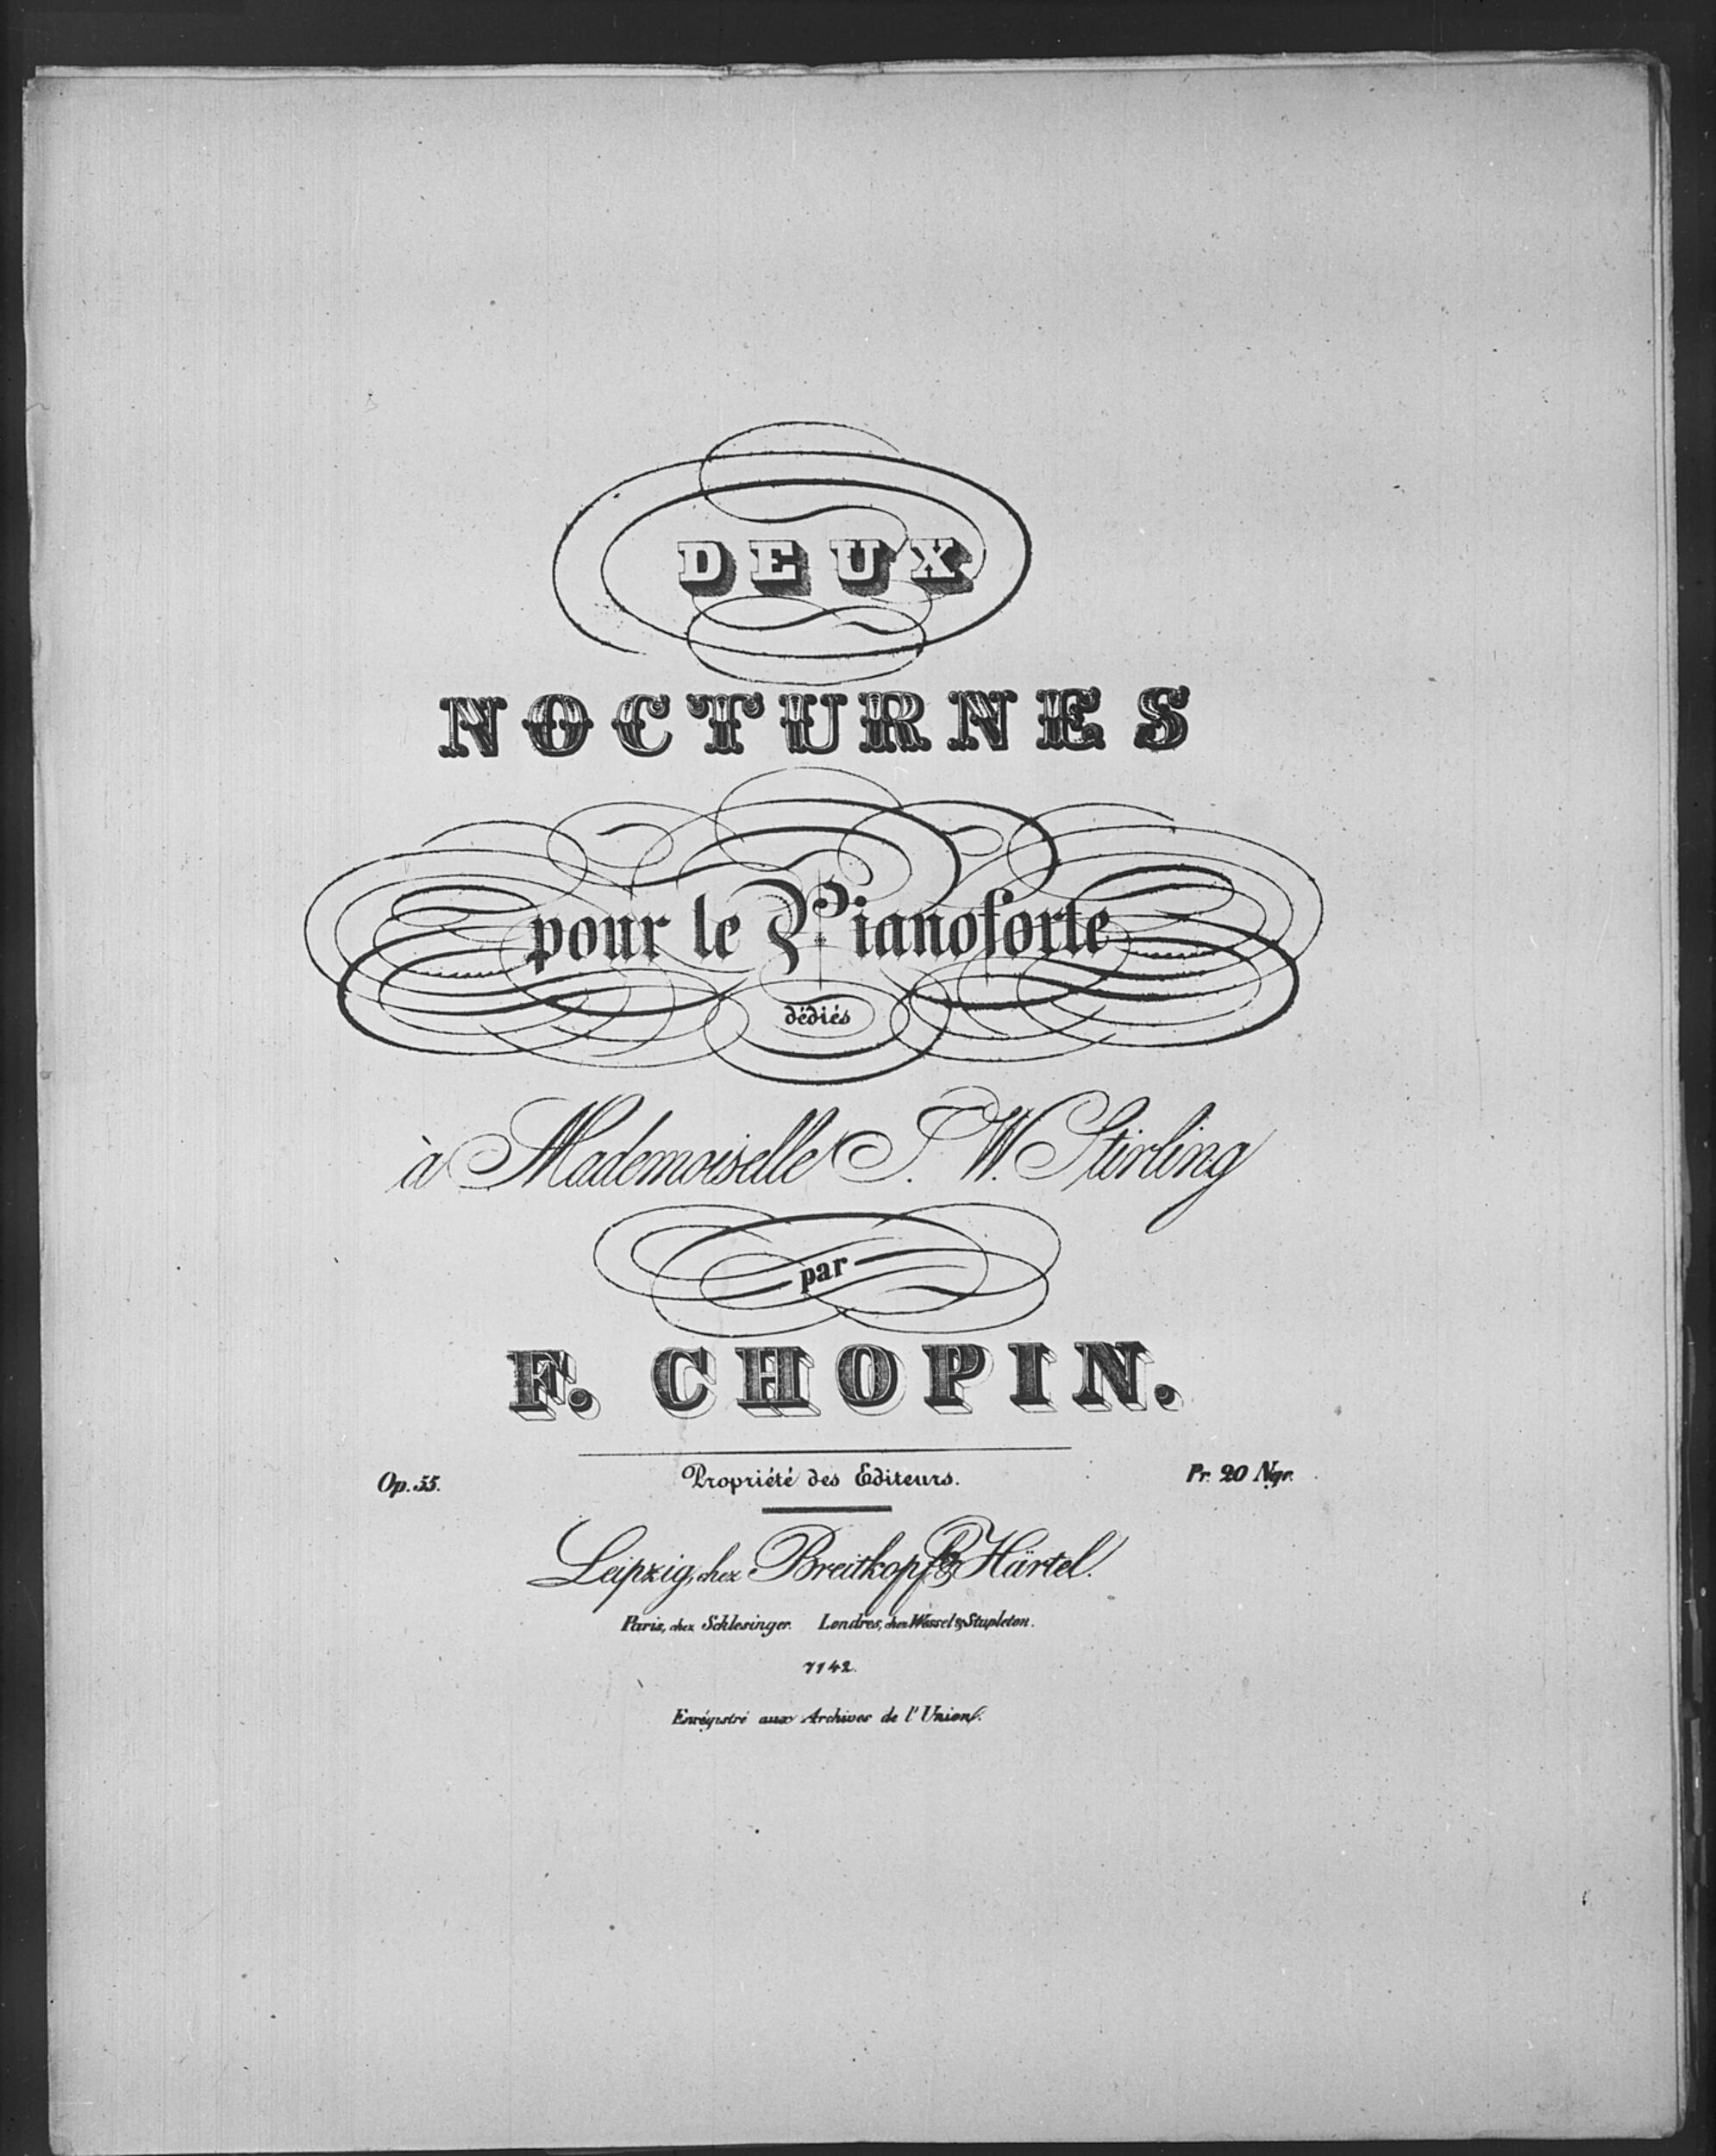 DEUX
NOCTURNES
pour le Pianoforte
dédiés
à Mademoiselle J. W. Stirling
par
F. CHOPIN.
Op. 55.
Propriété des Editeurs.
Pr. 20 Ngr.
Leipzig, chez Breitkopf & Härtel.
Paris, chez Schlesinger. Londres, chez Wessel & Stapleton.
7142.
Enrégistré aux Archives de l'Union.